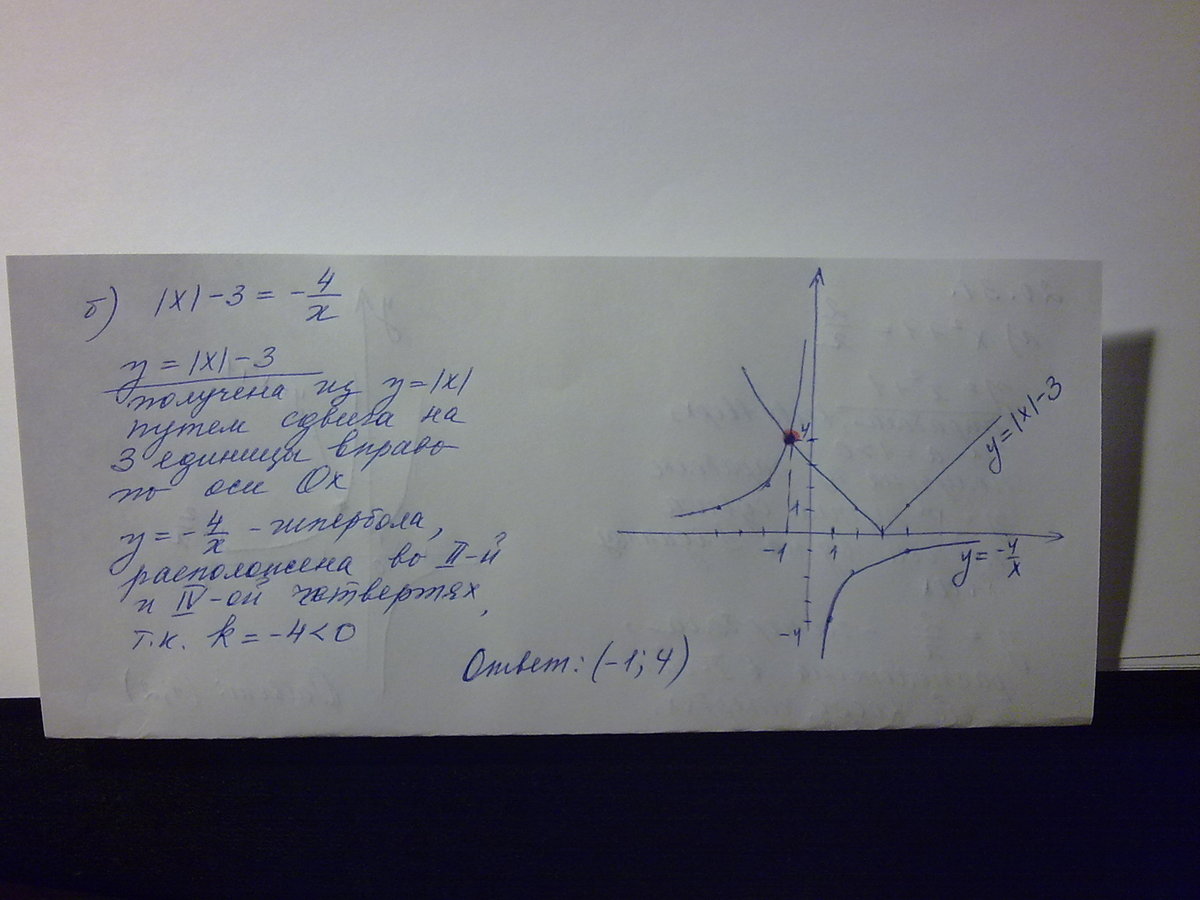 б) |x| - 3 = - 4/x
y = |x| - 3
получена из y = |x|
путем сдвига на
3 единицы вправо
по оси Ox
y = - 4/x - гипербола,
расположена во II-й
и IV-ой четвертях,
т.к. k = -4 < 0
Ответ: (-1; 4)
4
1
-1
1
-4
y = |x| - 3
y = - 4/x